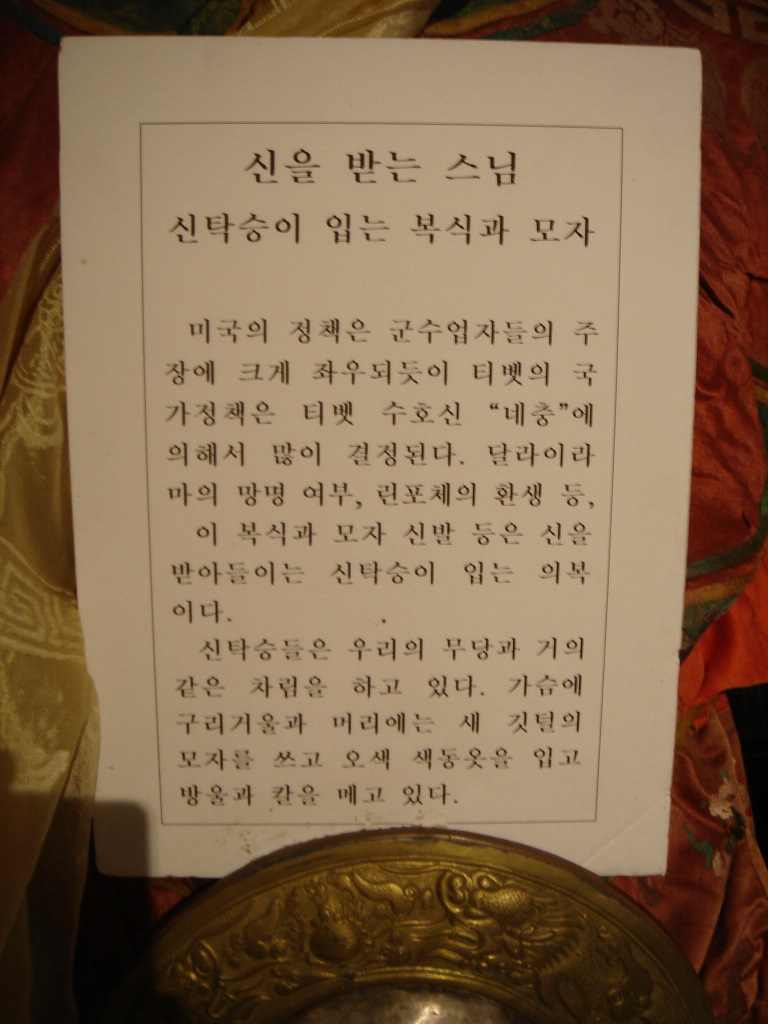 신을 받는 스님
신탁승이 입는 복식과 모자
미국의 정책은 군수업자들의 주
장에 크게 좌우되듯이 티벳의 국
가정책은 티벳 수호신 “네충”에
의해서 많이 결정된다. 달라이라
마의 망명 여부, 린포체의 환생 등,
이 복식과 모자 신발 등은 신을
받아들이는 신탁승이 입는 의복
이다.
신탁승들은 우리의 무당과 거의
같은 차림을 하고 있다. 가슴에
구리거울과 머리에는 새 깃털의
모자를 쓰고 오색 색동옷을 입고
방울과 칼을 메고 있다.